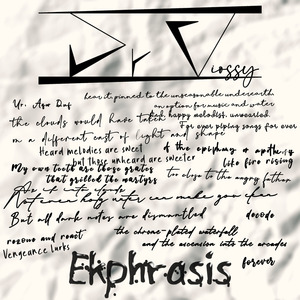 Dr V
iossy
hear it pinned to the unseasonable underearth
Ur. Aqw Duf an option for music and water
the clouds would have taken happy melodist, unwearied.
For ever piping songs for ever
in a different cast of light and shape
Heard melodies are sweet of the epiphany & apothegm
but those unheard are sweeter like fire rising
My own teeth are those grates
that grilled the martyrs too close to the angry father
As if into
make you
But all dark notes are dismantled dodedo
rozono and roast the chrome-plated waterfall
Vengeance lurks and the ascension into the arcades
Ekphrasis forever